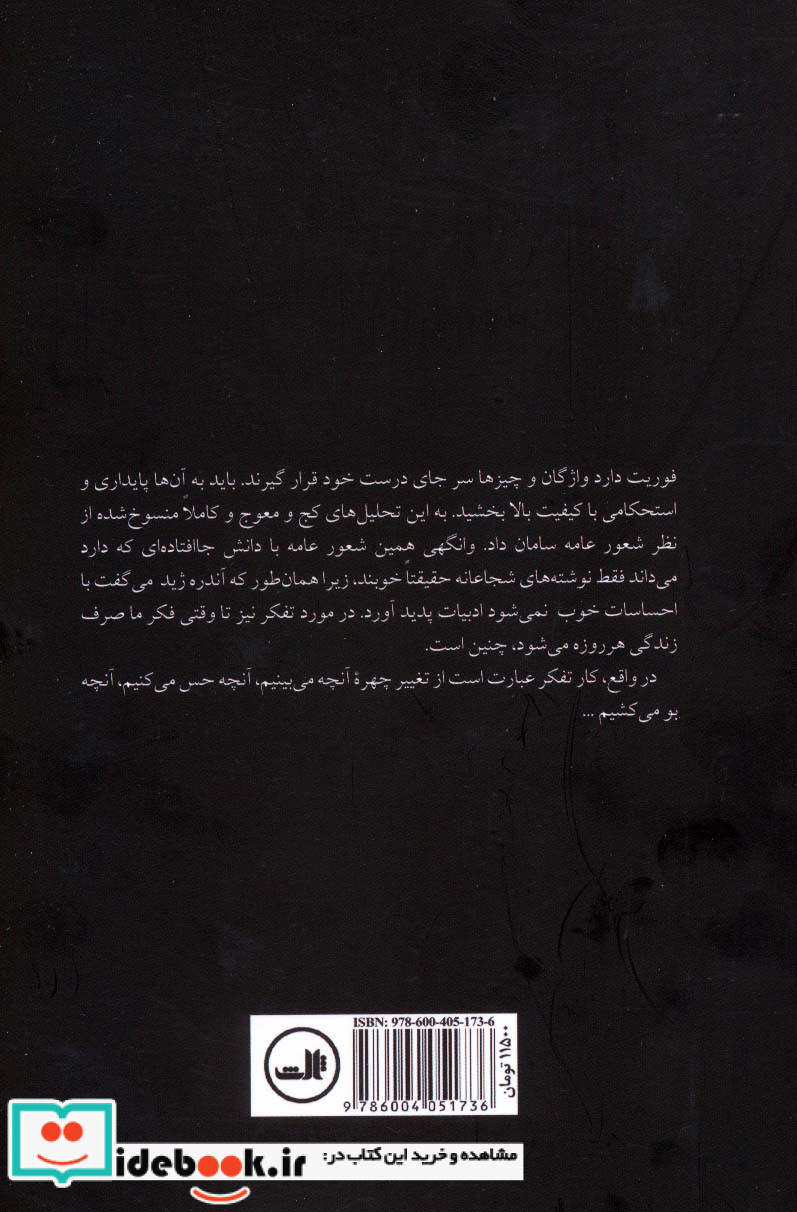 فوریت دارد واژگان و چیزها سر جای درست خود قرار گیرند. باید به آن‌ها پایداری و
استحکامی با کیفیت بالا بخشید. به این تحلیل‌های کج و معوج و کاملاً منسوخ‌شده از
نظر شعور عامه سامان داد. وانگهی همین شعور عامه با دانش جاافتاده‌ای که دارد
می‌داند فقط نوشته‌های شجاعانه حقیقتاً خوبند، زیرا همان‌طور که آندره ژید می‌گفت با
احساسات خوب نمی‌شود ادبیات پدید آورد. در مورد تفکر نیز تا وقتی فکر ما صرف
زندگی هرروزه می‌شود، چنین است.
در واقع، کار تفکر عبارت است از تغییر چهرهٔ آنچه می‌بینیم، آنچه حس می‌کنیم، آنچه
بو می‌کشیم ...
ISBN: 978-600-405-173-6
ثالث
۱۱۵۰۰ تومان
9 786004 051736
مشاهده و خرید این کتاب در:
idebook.ir